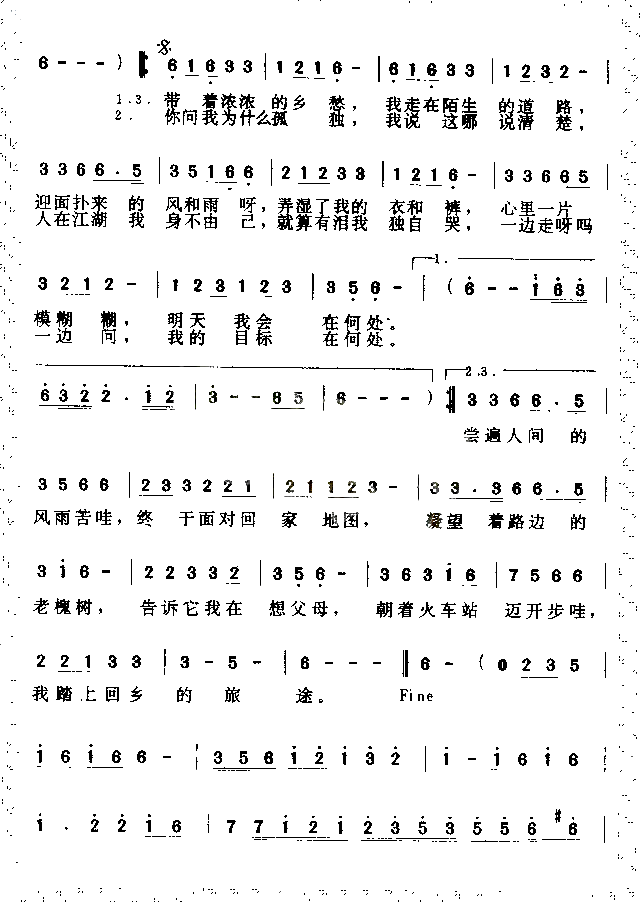 6 - - - ) 𝄋 6 1 6 3 3 | 1 2 1 6 - | 6 1 6 3 3 | 1 2 3 2 - |
1.3. 带 着浓浓 的乡 愁， 我走在陌生 的道路，
2. 你问我为什么孤 独， 我说 这哪 说清楚，
3 3 6 6 . 5 | 3 5 1 6 6 | 2 1 2 3 3 | 1 2 1 6 - | 3 3 6 6 5 |
迎面扑来 的 风和雨 呀，弄湿了我的 衣和 裤， 心里一片
人在江湖 我 身不由 己，就算有泪我 独自 哭， 一边走呀吗
3 2 1 2 - | 1 2 3 1 2 3 | 3 5 6 - | ( 6 - - 1 6 3 |
1.
模糊 糊， 明天 我会 在何处。
一边 问， 我的 目标 在何处。
6 3 2 2 . 1 2 | 3 - - 6 5 | 6 - - - ) 3 3 6 6 . 5 |
2.3.
尝遍人间 的
3 5 6 6 | 2 3 3 2 2 1 | 2 1 1 2 3 - | 3 3 . 3 6 6 . 5 |
风雨苦哇，终 于面对回 家 地图， 凝望 着路边 的
3 1 6 - | 2 2 3 3 2 | 3 5 6 - | 3 6 3 1 6 | 7 5 6 6 |
老槐树， 告诉它我在 想父母， 朝着火车站 迈开步哇，
2 2 1 3 3 | 3 - 5 - | 6 - - - ‖ 6 - ( 0 2 3 5 |
我踏上回乡 的 旅 途。 Fine
1 6 1 6 6 - | 3 5 6 1 2 1 3 2 | 1 - 1 6 1 6 |
1 . 2 2 1 6 | 7 7 1 2 1 2 3 5 3 5 5 6 #6 |